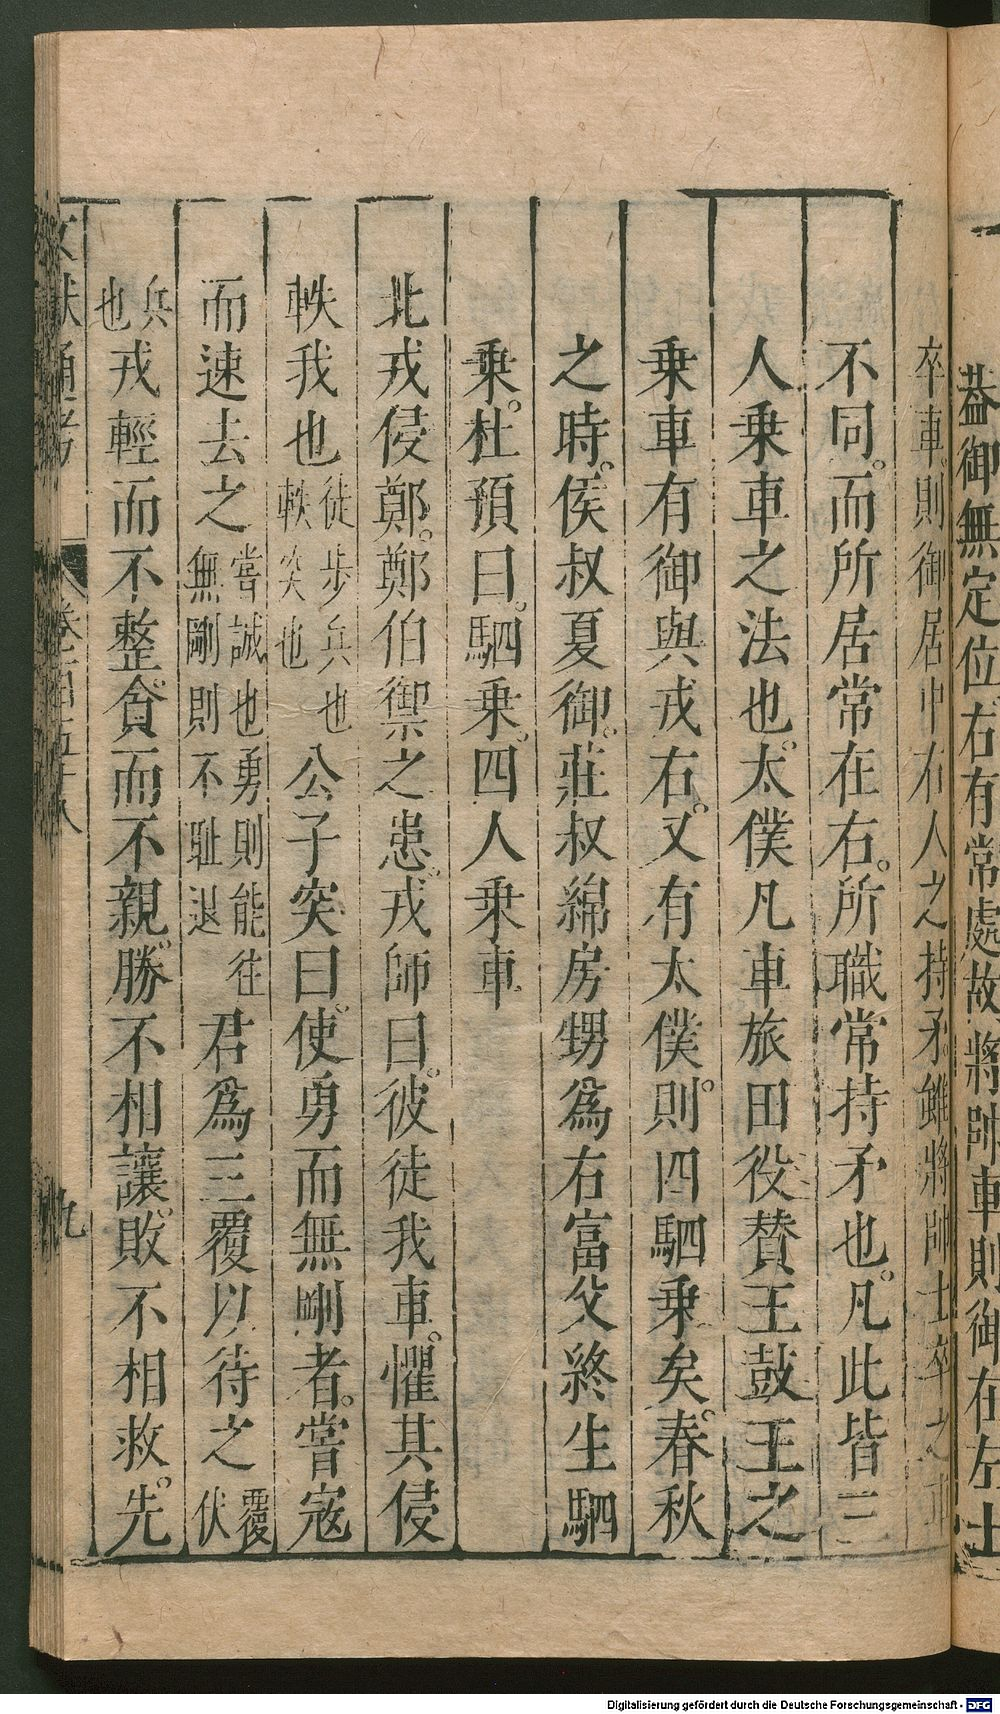 葢御無定位右有常處故將帥車則御在左士
卒車則御居中右人之持矛雖將帥士卒之車
不同而所居常在右所職常持矛也凡此皆三
人乗車之法也太僕凡車旅田役賛王鼓王之
乗車有御與戎右又有太僕則四駟乗矣春秋
之時侯叔夏御莊叔綿房甥爲右富父終生駟
乗杜預曰駟乗四人乗車
北戎侵鄭鄭伯禦之患戎師曰彼徒我車懼其侵
軼我也徒步兵也軼突也公子突曰使勇而無剛者嘗寇
而速去之嘗誠也勇則能往無剛則不耻退君爲三覆以待之覆伏
兵也戎輕而不整貪而不親勝不相讓敗不相救先
文獻通考 卷一百五十八 九
Digitalisierung gefördert durch die Deutsche Forschungsgemeinschaft - DFG